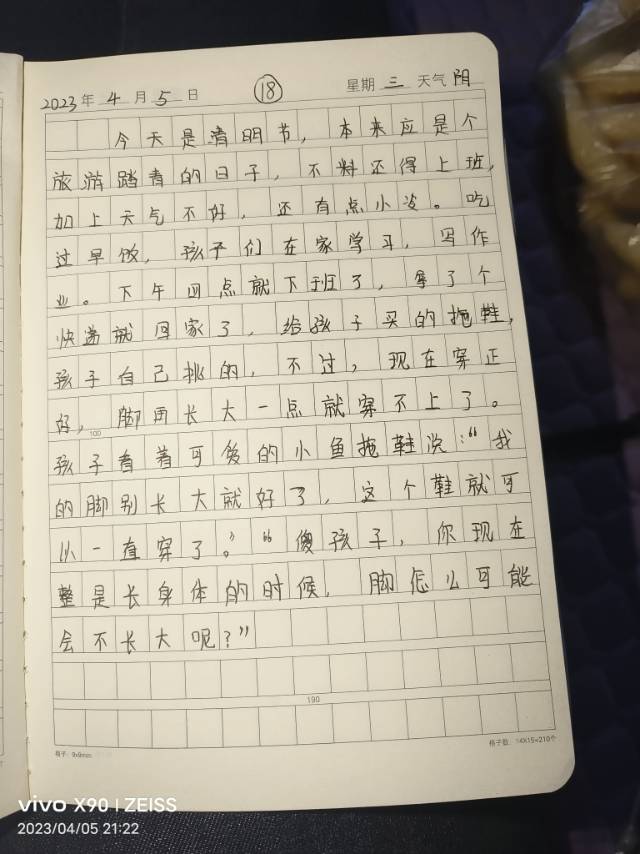 2023年 4 月 5 日 ⑱ 星期 三 天气 阴
今天是清明节，本来应是个
旅游踏青的日子，不料还得上班，
加上天气不好，还有点小冷。吃
过早饭，孩子们在家学习，写作
业。下午四点就下班了，拿了个
快递就回家了，给孩子买的拖鞋，
孩子自己挑的，不过，现在穿正
好，脚再长大一点就穿不上了。
100
孩子看着可爱的小鱼拖鞋说：“我
的脚别长大就好了，这个鞋就可
以一直穿了。”“傻孩子，你现在
整是长身体的时候，脚怎么可能
会不长大呢？”
190
格子：9x9mm 格子数：14X15=210个
vivo X90 | ZEISS
2023/04/05 21:22